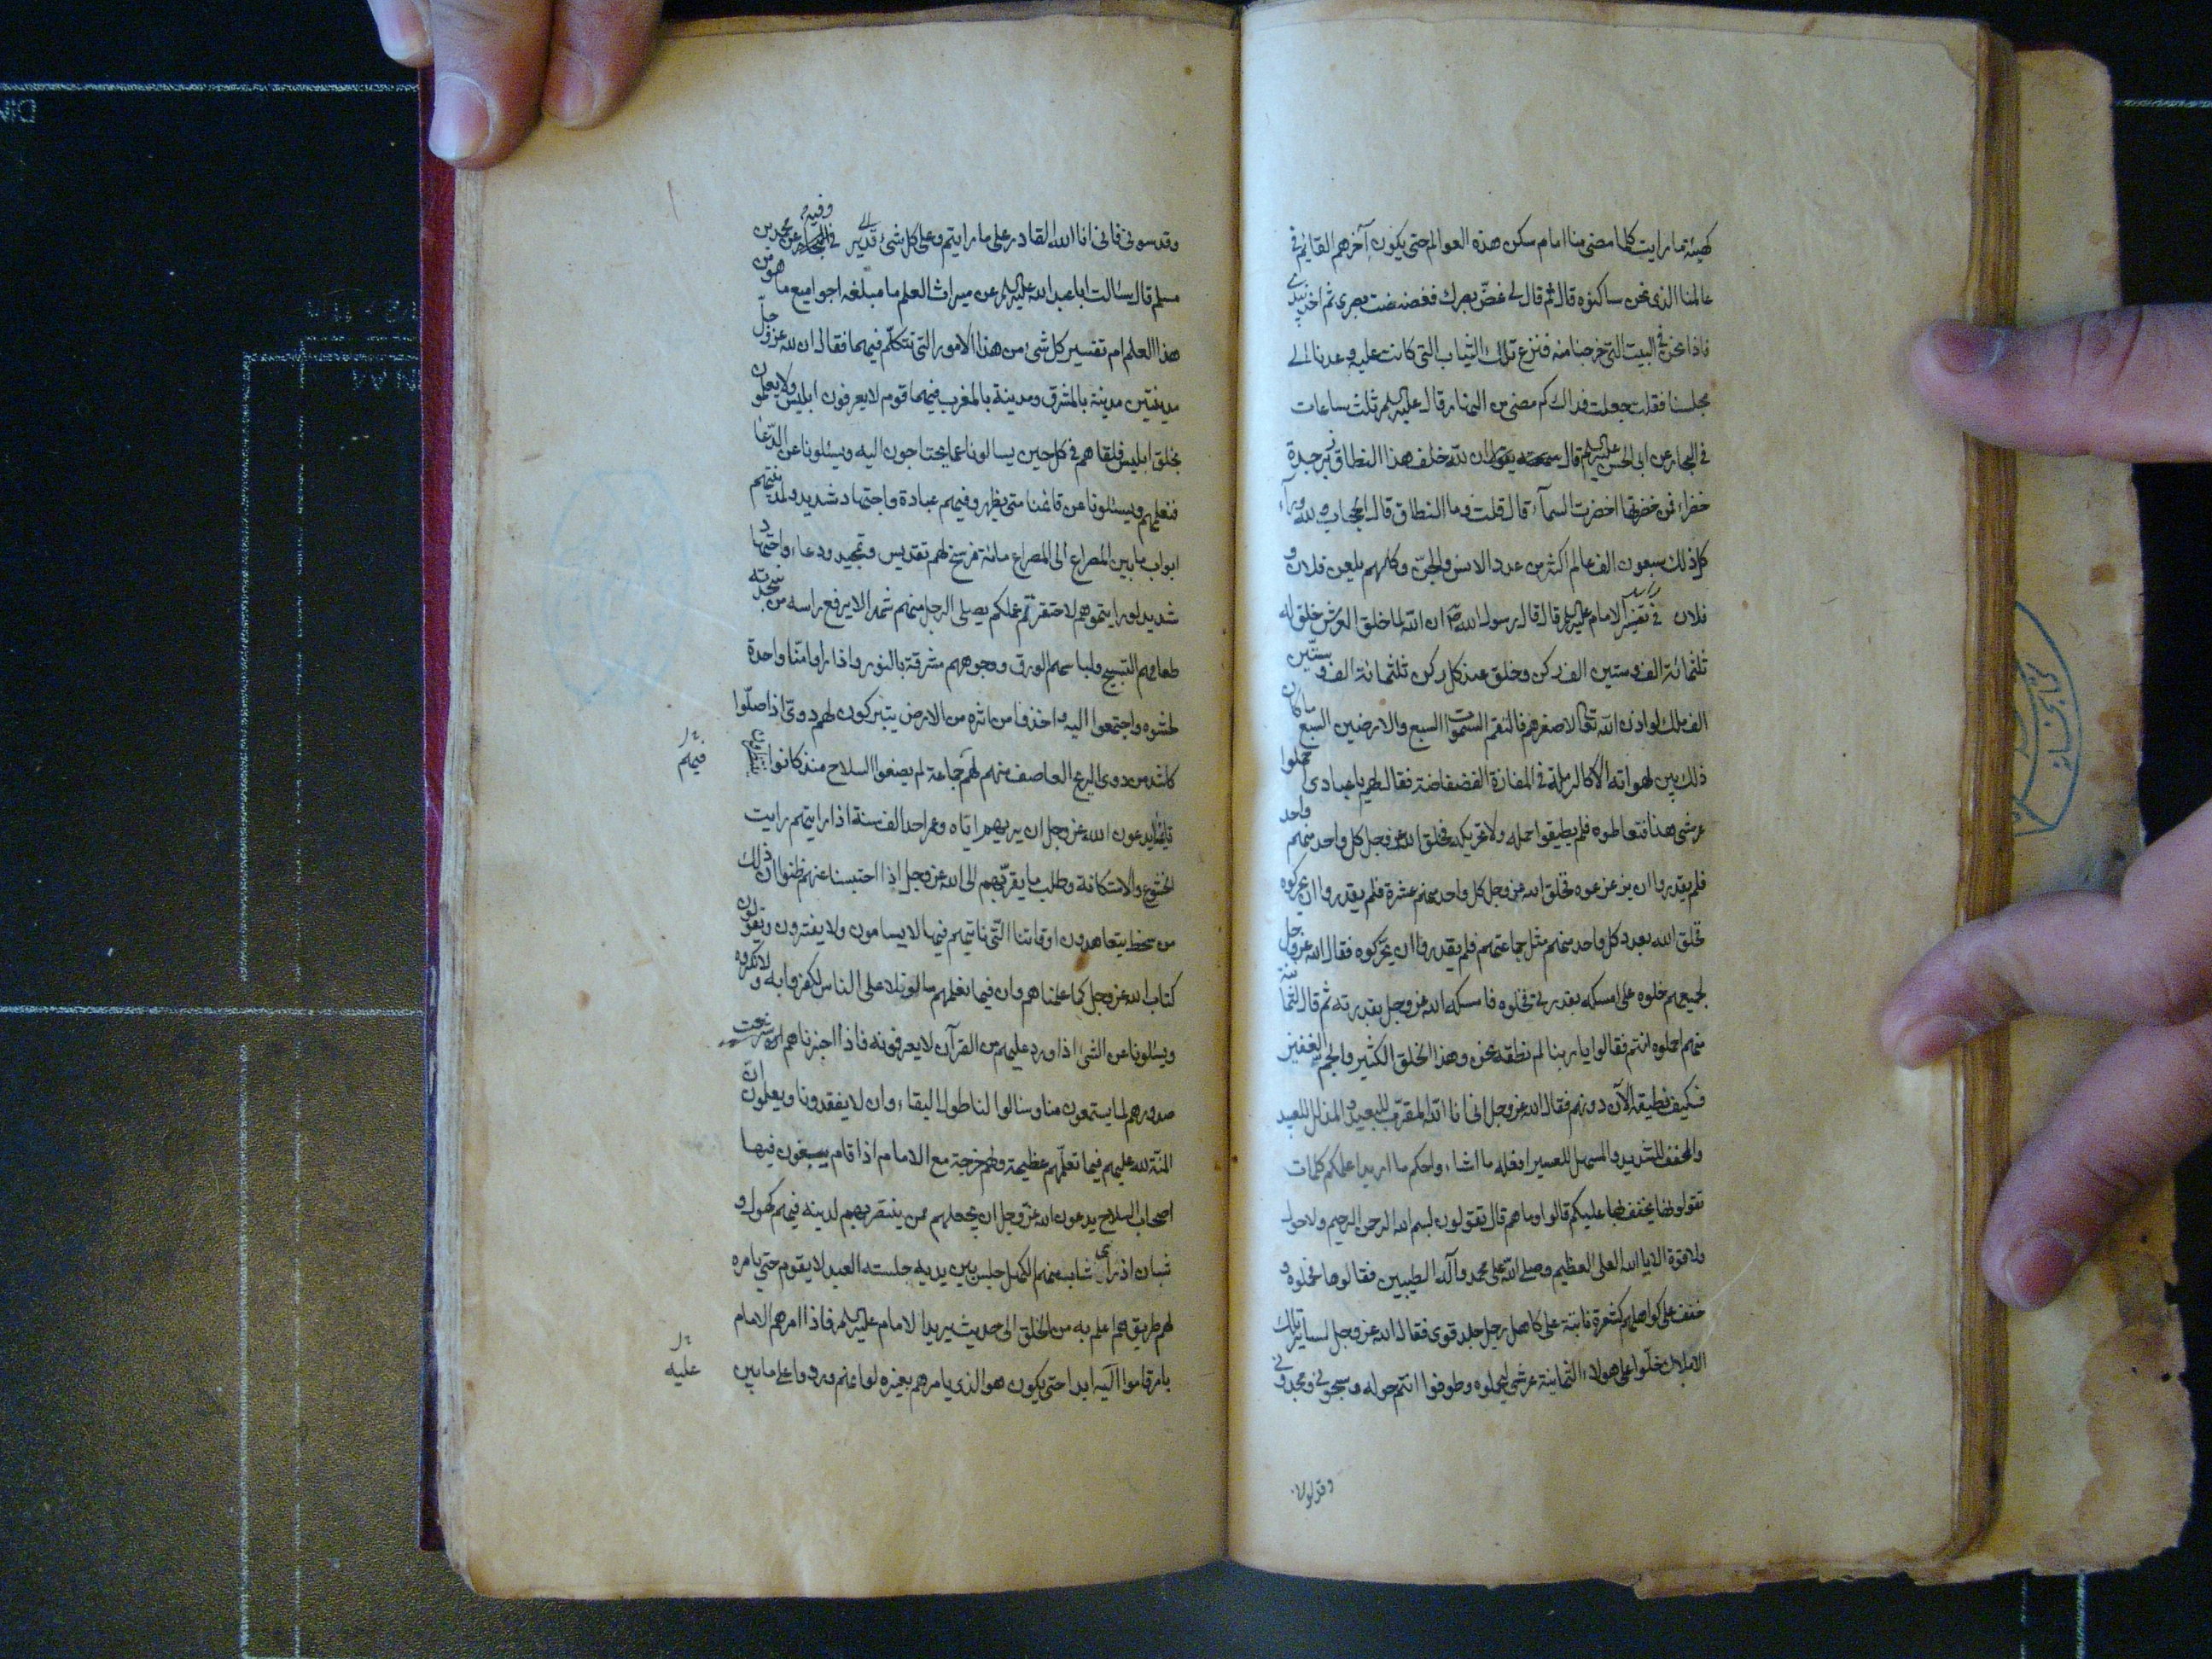 كهيئة ما رايت كلما مضى منا امام سكن هذه العوالم حتى يكون آخرهم القايم في
عالمنا الذى نحن ساكنوه قال ثم قال لى غضّ بصرك فغضضت بصرى ثم اخذ بيدى
فاذا نحن فى البيت التى خرجنا منه فنزع تلك الثياب التى كانت عليه وعدنا الى
مجلسنا فقلت جعلت فداك كم مضى من النهار قال عليه السلم ثلث ساعات
فى البحار عن ابى الحسن عليه السلم قال سمعته يقول ان لله خلف هذا النطاق زبرجدة
خضراء فمن خضرتها اخضرت السماء قال قلت وما النطاق قال الحجاب ولله وراء
ذلك سبعون الف عالم اكثر من عدد الانس والجنّ وكلهم يلعن فلان و
فلان فى تفسير الامام عليه السلم قال قال رسول الله ص ان الله لما خلق العرش خلق له
ثلثمائة الف وستين الف ركن وخلق عند كل ركن ثلثمائة الف وستين
الف ملك لو اذن الله تعالى لاصغرهم فالتقم السموات السبع والارضين السبع ما كان
ذلك بين لهواته الا كالرملة فى المفازة الفضفاضة فقال لهم يا عبادى احملوا
عرشى هذا فتعاطوه فلم يطيقوا حمله ولا تحريكه فخلق الله عز وجل كل واحد منهم واحد
فلم يقدروا ان يزعزعوه فخلق الله عز وجل كل واحد منهم عشرة فلم يقدروا ان يحركوه
فخلق الله بعدد كل واحد منهم مثل جماعتهم فلم يقدروا ان يحركوه فقال الله عز وجل
لجميعهم خلوه على امسكه بقدرتى فخلوه فامسكه الله عز وجل بقدرته ثم قال لثمانية
منهم احملوه انتم فقالوا يا ربنا لم نطقه نحن وهذا الخلق الكثير والجم الغفير
فكيف نطيقه الآن دونهم فقال الله عز وجل انى انا الله المقرّب للبعيد والمذلل للعبيد
والمخفف للشديد والمسهل للعسير افعل ما اشاء واحكم ما اريد اعلمكم كلمات
تقولونها يخفف بها عليكم قالوا وما هم قال تقولون بسم الله الرحمن الرحيم ولا حول
ولا قوة الا بالله العلى العظيم وصلى الله على محمد وآله الطيبين فقالوها فحملوه و
خفف على كواهلهم كشعرة نابتة على كاهل رجل جلد قوى فقال الله عز وجل لساير تلك
الاملاك خلّوا على هولاء الثمانية عرشى ليحملوه وطوفوا انتم حوله وسبحونى ومجدونى
وقدسونى
وقدسونى فانى انا الله القادر على ما رايتم وعلى كل شىء قدير وفيه عن محمد بن
مسلم قال سالت ابا عبد الله عليه السلم عن ميراث العلم ما مبلغه اجواميع ما هو من
هذا العلم ام تفسير كل شىء من هذا الامور التى نتكلّم فيهما فقال ان لله عز وجلّ
مدينتين مدينة بالمشرق ومدينة بالمغرب فيهما قوم لا يعرفون ابليس ولا يعلمون
بخلق ابليس فلقاهم فى كل حين يسالونا عما يحتاجون اليه ويسئلونا عن الدّعا
فنعلمهم ويسئلونا عن قائمنا متى يظهر وفيهم عبادة واجتهاد شديد ولمدينتهم
ابواب ما بين المصراع الى المصراع مائة فرسخ لهم تقديس وتمجيد ودعاء واجتهاد
شديد لو رايتموهم لاحتقرتم عملكم يصلى الرجل منهم شهرا لا يرفع راسه من سجدته
طعامهم التسبيح ولباسهم الورق ووجوههم مشرقة بالنور واذا راوا منّا واحدة
لحسوه واجتمعوا اليه واخذوا من اثره من الارض يتبركون لهم دوىّ اذا صلّوا
كاشد من دوى الريح العاصف منهم لهم جماعة لم يضعوا السلاح منذ كانوا ينتظرون
فيهم
قائمنا يدعون الله عز وجل ان يريهم اياه وعمر احد الف سنة اذا رايتهم رايت
الخشوع والاستكانة وطلب ما يقربهم الى الله عز وجل اذا احتبسنا عنهم ظنوا ان ذلك
من سخط يتعاهدون اوقاتنا التى ناتيهم فيها لا يسامون ولا يفترون ويتلون
كتاب الله عز وجل كما علمناهم وان فيما نعلمهم ما لو تلا على الناس لكفروا به ولانكروه
ويسئلونا عن الشىء اذا ورد عليهم من القرآن لا يعرفونه فاذا اخبرناهم به انشرحت
صدورهم لما يستمعون منا وسالوا لنا طول البقاء وان لا يفقدونا ويعلمون ان
المنّة لله عليهم فيما نعلّمهم عظيمة ولهم خرجة مع الامام اذا قام يسبقون فيها
اصحاب السلاح يدعون الله عز وجل ان يجعلهم ممن ينتصر بهم لدينه فيهم كهول و
شبان اذا راى شاب منهم الكهل جلس بين يديه جلسة العبد لا يقوم حتى يامره
لهم طريق هم اعلم به من الخلق الى حديث يريد الامام عليه السلم فاذا امرهم الامام
بامر قاموا اليه ابدا حتى يكون هو الذى يامرهم بغيره لو انهم وردوا على ما بين
عليه